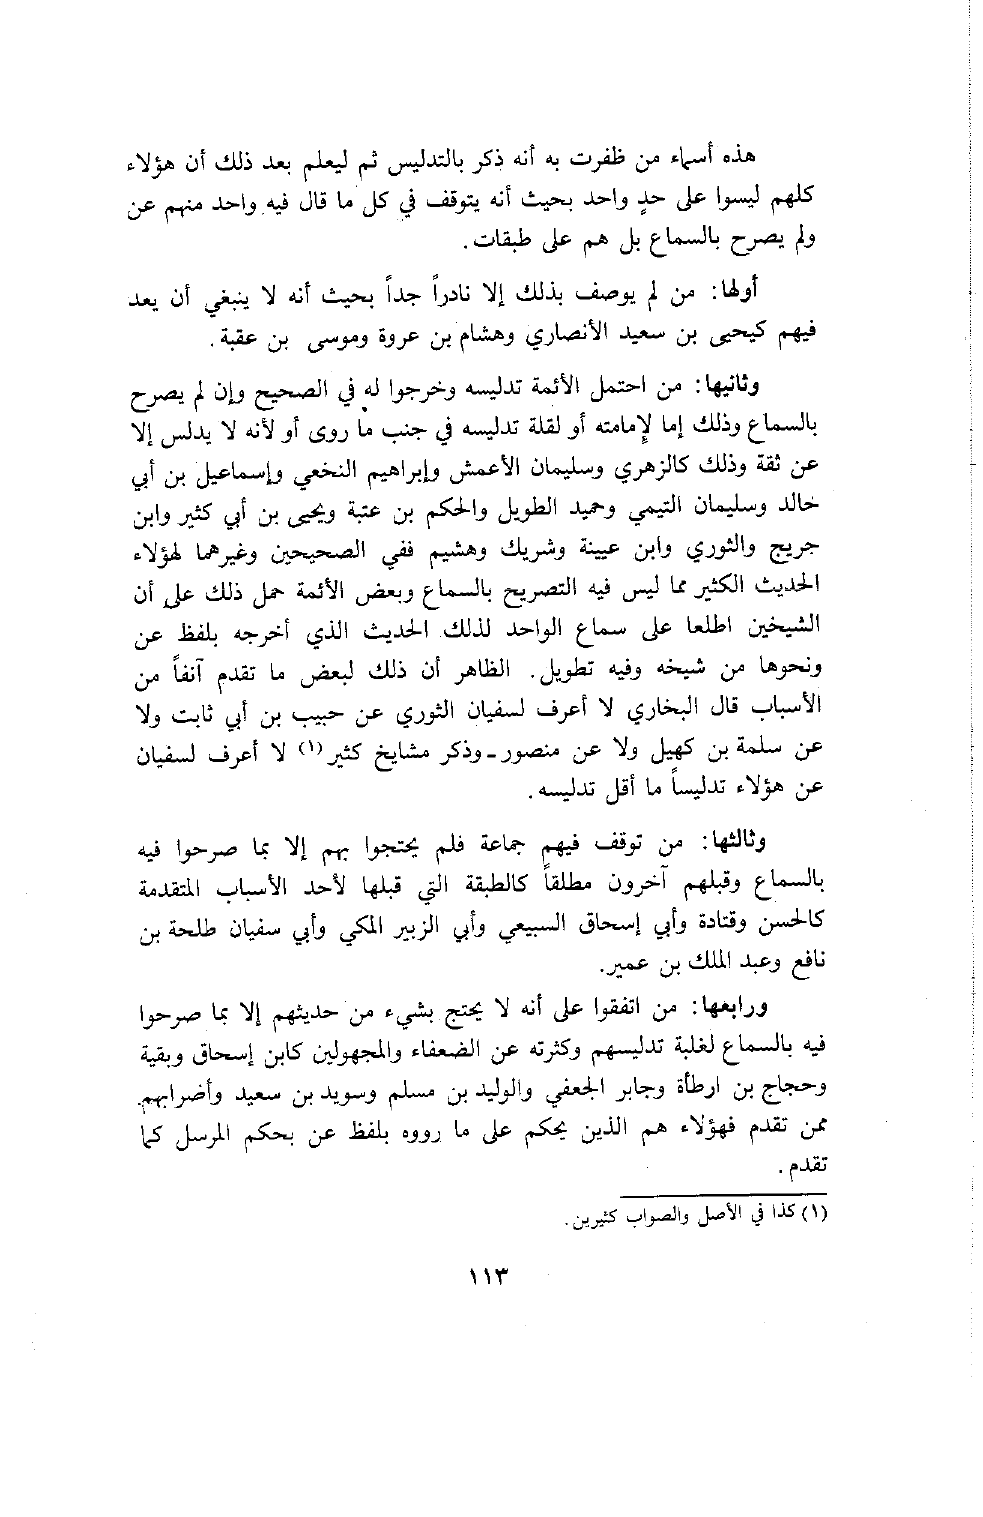 هذه أسماء من ظفرت به أنه ذكر بالتدليس ثم ليعلم بعد ذلك أن هؤلاء
كلهم ليسوا على حدٍ واحد بحيث أنه يتوقف في كل ما قال فيه واحد منهم عن
ولم يصرح بالسماع بل هم على طبقات.
أولها: من لم يوصف بذلك إلا نادراً جداً بحيث أنه لا ينبغي أن يعد
فيهم كيحيى بن سعيد الأنصاري وهشام بن عروة وموسى بن عقبة.
وثانيها: من احتمل الأئمة تدليسه وخرجوا له في الصحيح وإن لم يصرح
بالسماع وذلك إما لإمامته أو لقلة تدليسه في جنب ما روى أو لأنه لا يدلس إلا
عن ثقة وذلك كالزهري وسليمان الأعمش وإبراهيم النخعي وإسماعيل بن أبي
خالد وسليمان التيمي وحميد الطويل والحكم بن عتبة ويحيى بن أبي كثير وابن
جريج والثوري وابن عيينة وشريك وهشيم ففي الصحيحين وغيرهما لهؤلاء
الحديث الكثير مما ليس فيه التصريح بالسماع وبعض الأئمة حمل ذلك على أن
الشيخين اطلعا على سماع الواحد لذلك الحديث الذي أخرجه بلفظ عن
ونحوها من شيخه وفيه تطويل. الظاهر أن ذلك لبعض ما تقدم آنفاً من
الأسباب قال البخاري لا أعرف لسفيان الثوري عن حبيب بن أبي ثابت ولا
عن سلمة بن كهيل ولا عن منصور ـ وذكر مشايخ كثير (١) لا أعرف لسفيان
عن هؤلاء تدليساً ما أقل تدليسه.
وثالثها: من توقف فيهم جماعة فلم يحتجوا بهم إلا بما صرحوا فيه
بالسماع وقبلهم آخرون مطلقاً كالطبقة التي قبلها لأحد الأسباب المتقدمة
كالحسن وقتادة وأبي إسحاق السبيعي وأبي الزبير المكي وأبي سفيان طلحة بن
نافع وعبد الملك بن عمير.
ورابعها: من اتفقوا على أنه لا يحتج بشيء من حديثهم إلا بما صرحوا
فيه بالسماع لغلبة تدليسهم وكثرته عن الضعفاء والمجهولين كابن إسحاق وبقية
وحجاج بن ارطأة وجابر الجعفي والوليد بن مسلم وسويد بن سعيد وأضرابهم.
ممن تقدم فهؤلاء هم الذين يحكم على ما رووه بلفظ عن بحكم المرسل كما
تقدم.
(١) كذا في الأصل والصواب كثيرين.
١١٣